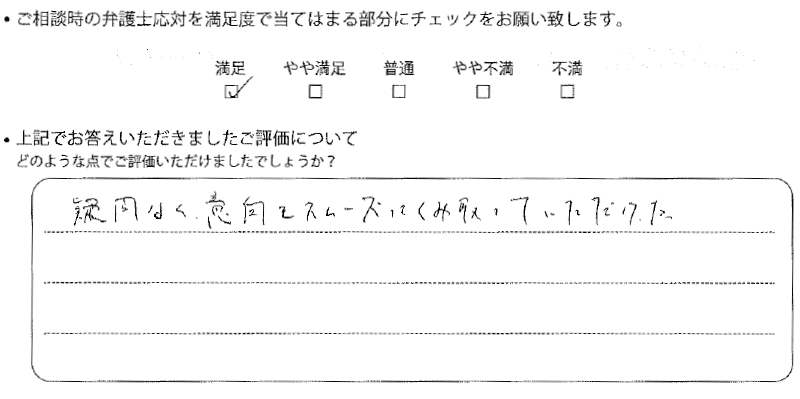 • ご相談時の弁護士応対を満足度で当てはまる部分にチェックをお願い致します。
満足 やや満足 普通 やや不満 不満
☑ □ □ □ □
• 上記でお答えいただきましたご評価について
どのような点でご評価いただけましたでしょうか？
疑問なく、意向をスムーズにくみ取っていただけた